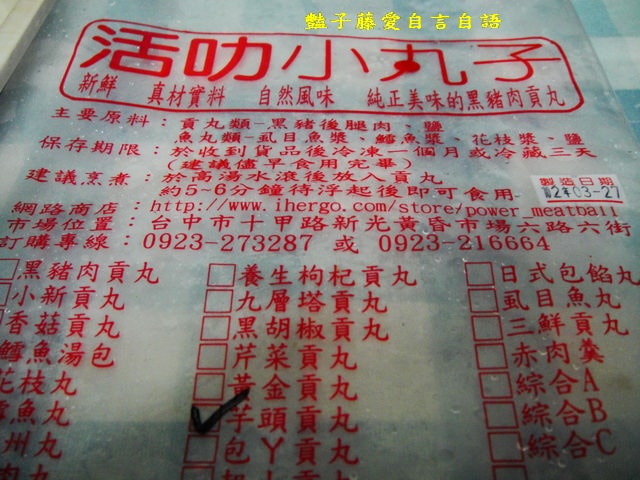 豔子藤愛自言自語
活叻小丸子
新鮮 真材實料 自然風味 純正美味的黑豬肉貢丸
主要原料：貢丸類-黑豬後腿肉、鹽
魚丸類-虱目魚漿、鱈魚漿、花枝漿、鹽
保存期限：於收到貨品後冷凍一個月或冷藏三天
(建議儘早食用完畢)
建議烹煮：於高湯水滾後放入貢丸
約5~6分鐘待浮起後即可食用
製造日期
03-27
網路商店：http://www.ihergo.com/store/power_meatball
市場位置：台中市十甲路新光黃昏市場六路六街
訂購專線：0923-273287 或 0923-216664
黑豬肉貢丸 養生枸杞貢丸 日式包餡丸
小新貢丸 九層塔貢丸 虱目魚丸
香菇貢丸 黑胡椒貢丸 三鮮貢丸
鱈魚湯包 芹菜貢丸 赤肉羹
花枝丸 黃金貢丸 綜合A
魚丸 芋頭貢丸 綜合B
州丸 包丫貢丸 綜合C
肉丸